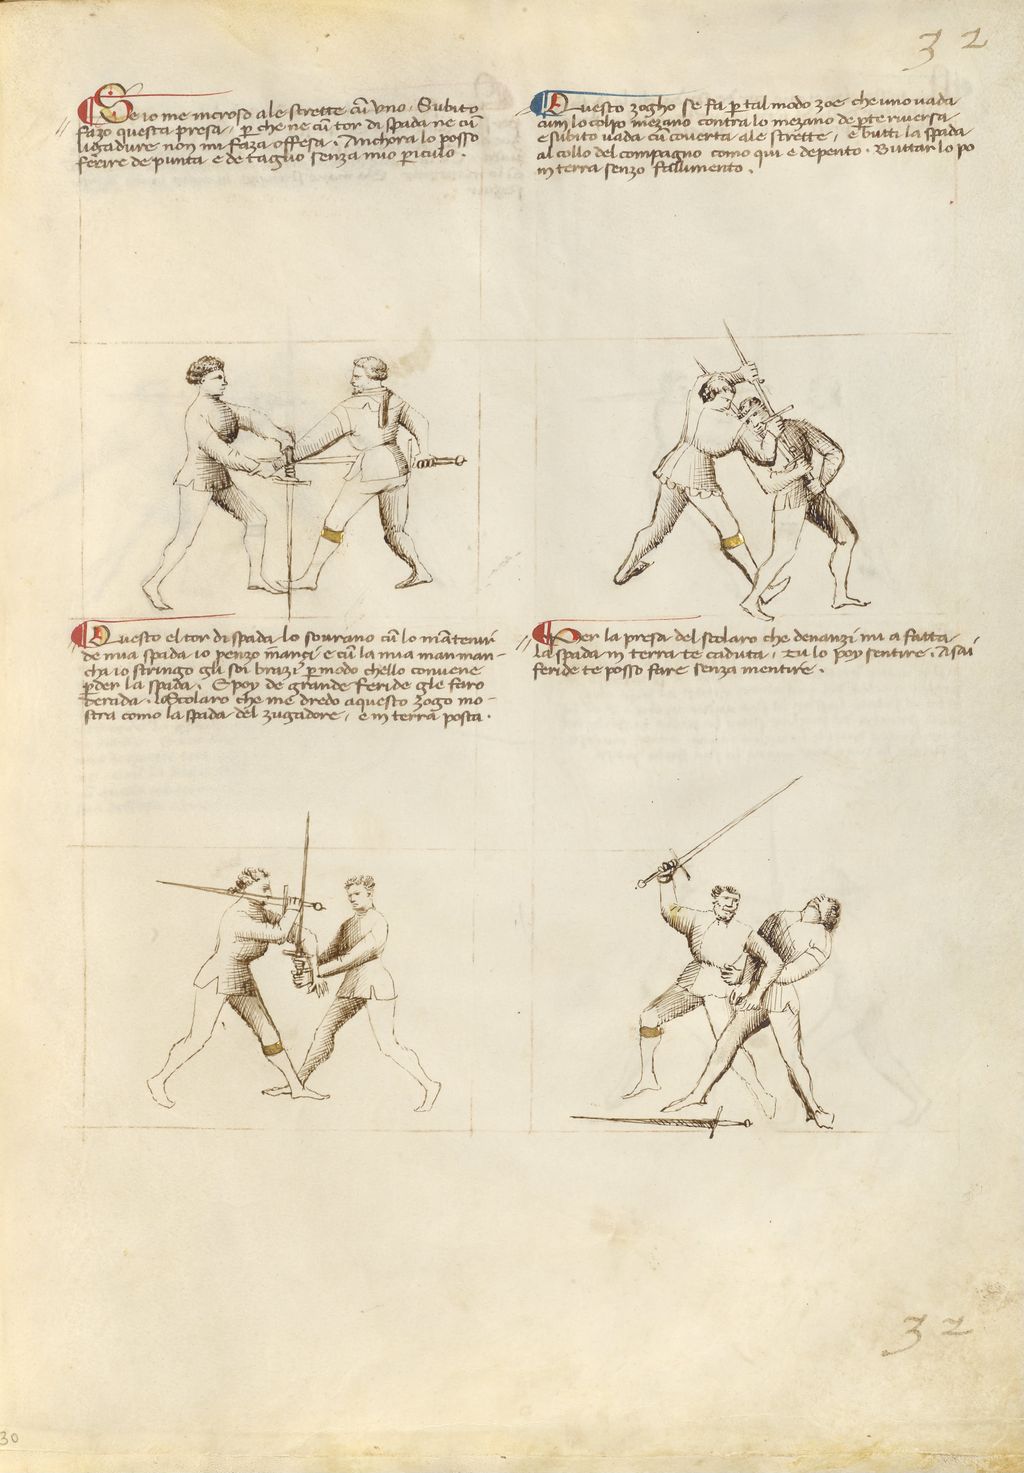 32
Se io me incroso ale strette cū uno. Subito
fazo questa presa, p che ne cū tor di spada ne cū
ligadure non mi faza offesa. Anchora lo posso
ferire de punta e de taglio senza mio piculo.
Questo zogho se fa p tal modo zoe che uno vada
cum lo colpo mezano contra lo mezano de pte riversa
e subito vada cū coverta ale strette, e butti la spada
al collo del compagno como qui e depento. Buttar lo po
in terra senzo fallimento.
Questo el tor di spada lo sovrano cū lo mātenir
de mia spada io penzo inançi e cū la mia man man-
cha io stringo gli soi brazi p modo chello convene
pder la spada. E poy de grande feride gle faro
derada. Lo Scolaro che me dredo a questo zogo mo-
stra como la spada del zugadore, e in terra posta.
Per la presa del scolaro che denanzi mi a fatta
la spada in terra te caduta, tu lo poy sentire. Asai
feride te posso fare senza mentire.
32
30